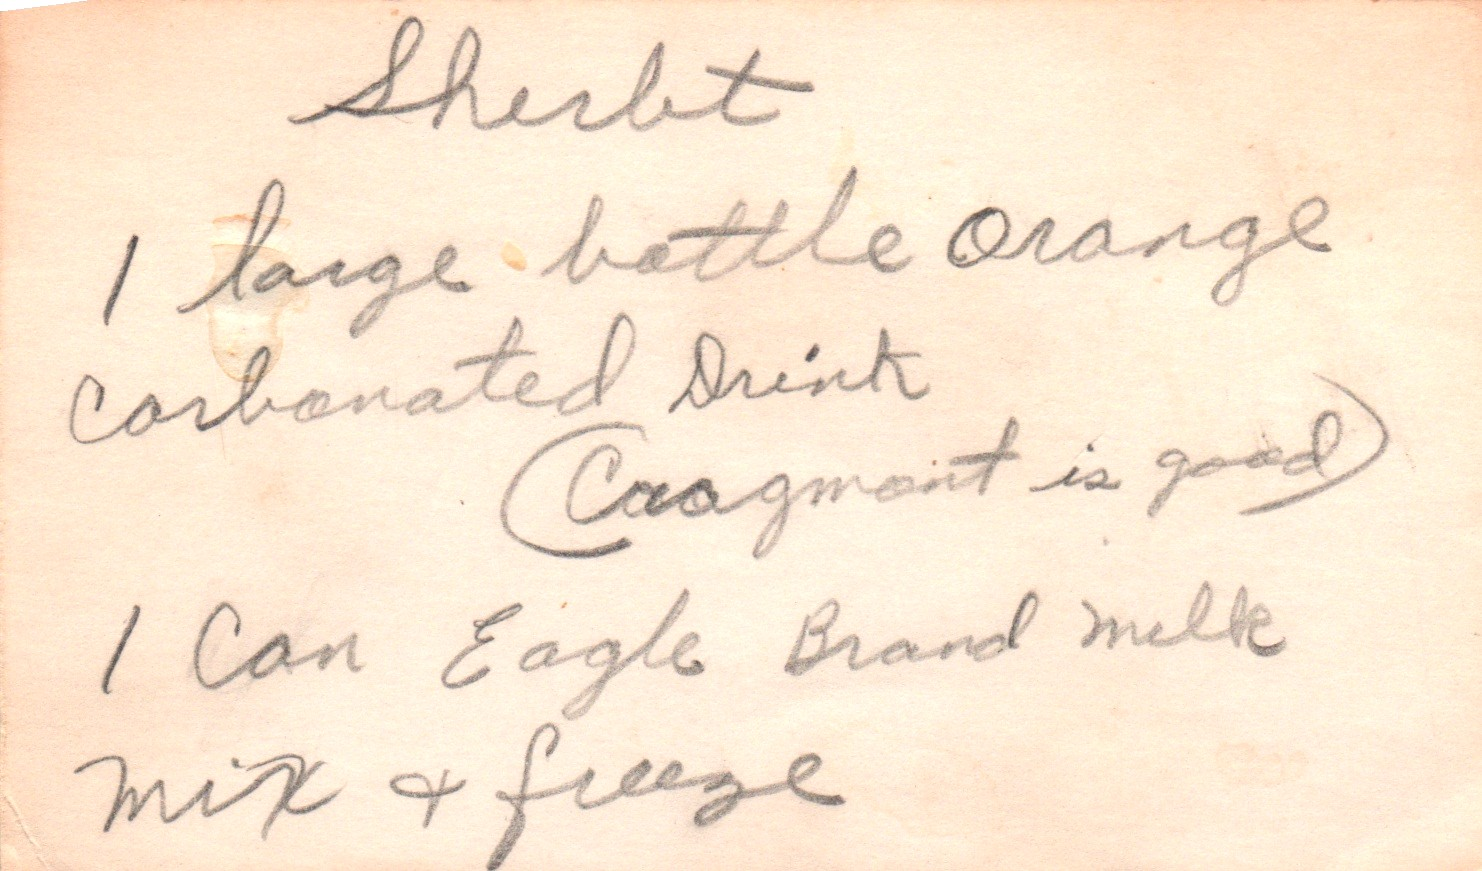 Sherbt
1 large bottle Orange
Carbonated Drink
(Cragmont is good)
1 Can Eagle Brand Milk
Mix + freeze